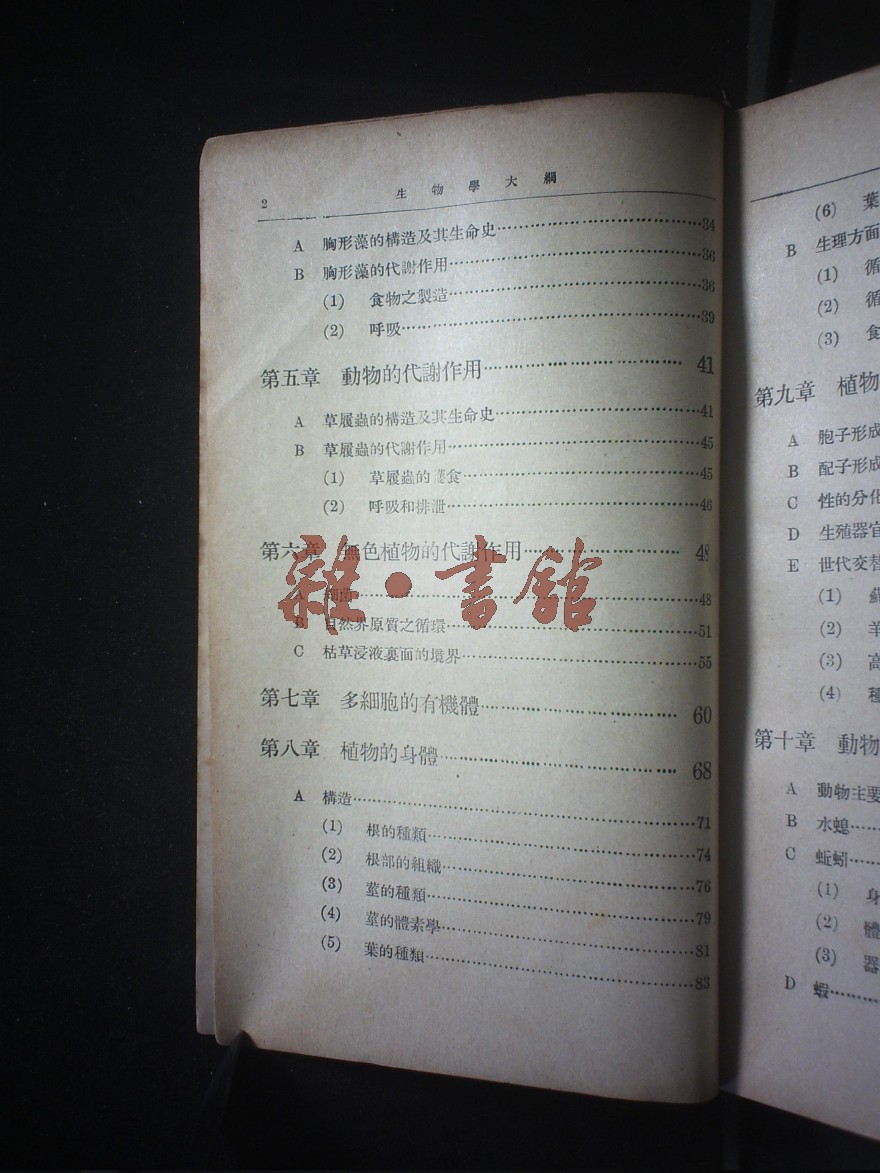 2 生物學大綱
A 胸形藻的構造及其生命史……34
B 胸形藻的代謝作用……36
(1) 食物之製造……36
(2) 呼吸……39
第五章 動物的代謝作用……41
A 草履蟲的構造及其生命史……41
B 草履蟲的代謝作用……45
(1) 草履蟲的 食……45
(2) 呼吸和排泄……46
第六章 無色植物的代謝作用……48
A 細菌……48
B 自然界原質之循環……51
C 枯草浸液裏面的境界……55
第七章 多細胞的有機體……60
第八章 植物的身體……68
A 構造……71
(1) 根的種類……74
(2) 根部的組織……76
(3) 莖的種類……79
(4) 莖的體素學……81
(5) 葉的種類……83
雜·書舘
(6) 葉
B 生理方面
(1) 循
(2) 循
(3) 食
第九章 植物
A 胞子形成
B 配子形成
C 性的分化
D 生殖器官
E 世代交替
(1) 蘚
(2) 羊
(3) 高
(4) 種
第十章 動物
A 動物主要
B 水螅……
C 蚯蚓……
(1) 身
(2) 體
(3) 器
D 蝦……